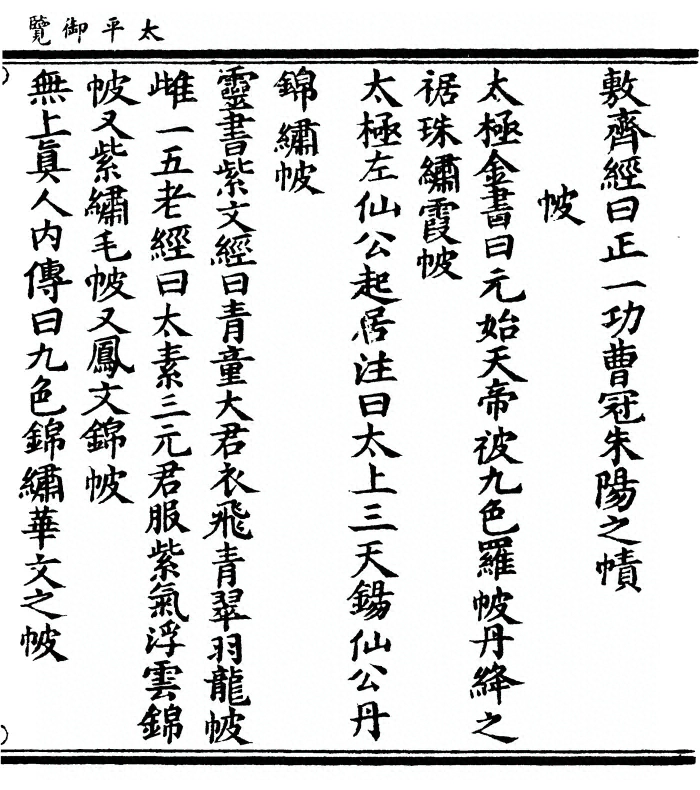 太平御覽
敷齊經曰正一功曹冠朱陽之幘
帔
太極金書曰元始天帝被九色羅帔丹絳之
裾珠繡霞帔
太極左仙公起居注曰太上三天錫仙公丹
錦繡帔
靈書紫文經曰青童大君衣飛青翠羽龍帔
雌一五老經曰太素三元君服紫氣浮雲錦
帔又紫繡毛帔又鳳文錦帔
無上真人內傳曰九色錦繡華文之帔